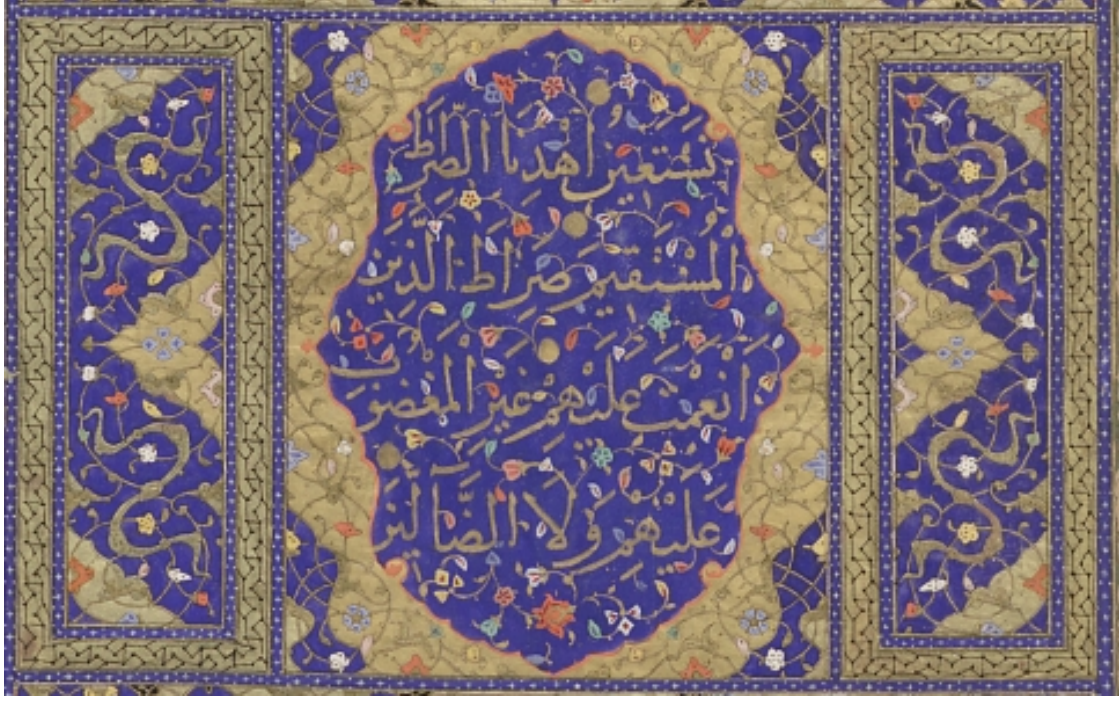 نَسْتَعِينُ اهْدِنَا الصِّرَاطَ
الْمُسْتَقِيمَ صِرَاطَ الَّذِينَ
أَنْعَمْتَ عَلَيْهِمْ غَيْرِ الْمَغْضُوبِ
عَلَيْهِمْ وَلَا الضَّالِّينَ